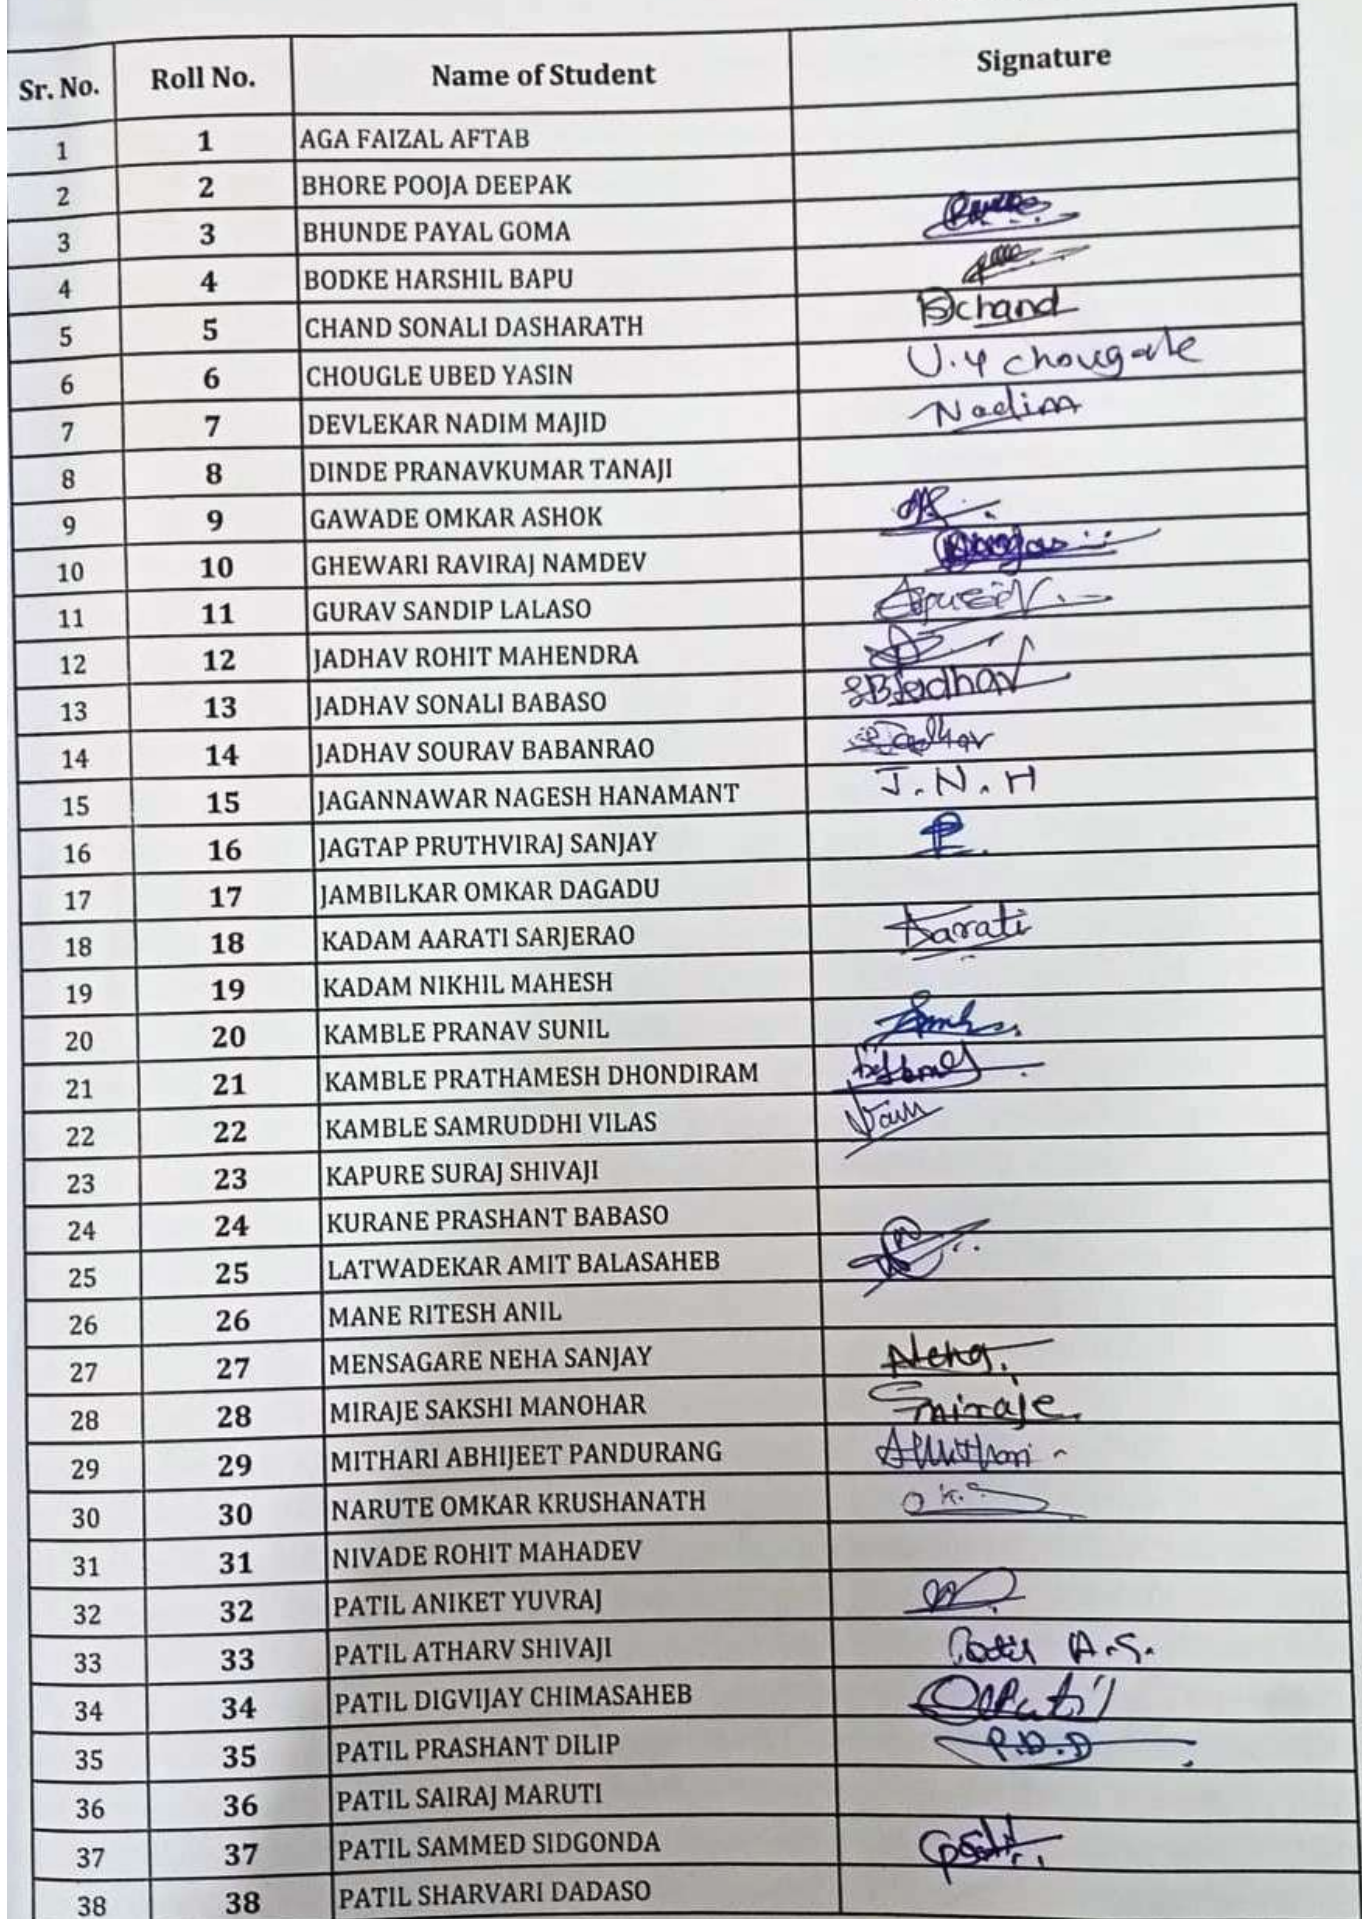 Sr. No. Roll No. Name of Student Signature
1 1 AGA FAIZAL AFTAB
2 2 BHORE POOJA DEEPAK
3 3 BHUNDE PAYAL GOMA
4 4 BODKE HARSHIL BAPU
5 5 CHAND SONALI DASHARATH Schand
6 6 CHOUGLE UBED YASIN U.Y chougale
7 7 DEVLEKAR NADIM MAJID Nadim
8 8 DINDE PRANAVKUMAR TANAJI
9 9 GAWADE OMKAR ASHOK
10 10 GHEWARI RAVIRAJ NAMDEV
11 11 GURAV SANDIP LALASO
12 12 JADHAV ROHIT MAHENDRA
13 13 JADHAV SONALI BABASO SBJadhav
14 14 JADHAV SOURAV BABANRAO
15 15 JAGANNAWAR NAGESH HANAMANT J.N.H
16 16 JAGTAP PRUTHVIRAJ SANJAY P.
17 17 JAMBILKAR OMKAR DAGADU
18 18 KADAM AARATI SARJERAO Aarati
19 19 KADAM NIKHIL MAHESH
20 20 KAMBLE PRANAV SUNIL
21 21 KAMBLE PRATHAMESH DHONDIRAM
22 22 KAMBLE SAMRUDDHI VILAS
23 23 KAPURE SURAJ SHIVAJI
24 24 KURANE PRASHANT BABASO
25 25 LATWADEKAR AMIT BALASAHEB
26 26 MANE RITESH ANIL
27 27 MENSAGARE NEHA SANJAY Neha.
28 28 MIRAJE SAKSHI MANOHAR Smiraje
29 29 MITHARI ABHIJEET PANDURANG AMithari
30 30 NARUTE OMKAR KRUSHANATH O.K.
31 31 NIVADE ROHIT MAHADEV
32 32 PATIL ANIKET YUVRAJ
33 33 PATIL ATHARV SHIVAJI Patil A.S.
34 34 PATIL DIGVIJAY CHIMASAHEB
35 35 PATIL PRASHANT DILIP P.D.D
36 36 PATIL SAIRAJ MARUTI
37 37 PATIL SAMMED SIDGONDA
38 38 PATIL SHARVARI DADASO